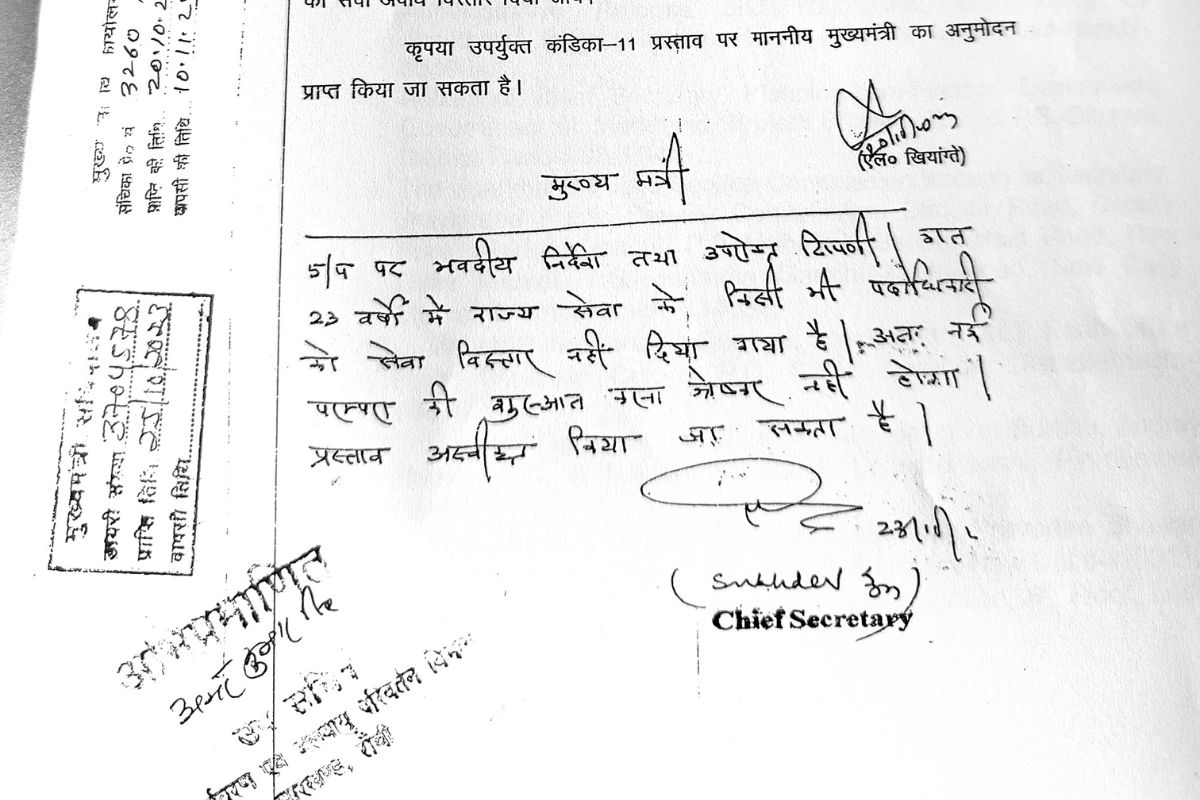 को सेवा अवधि विस्तार दिया जाय।
कृपया उपर्युक्त कंडिका–11 प्रस्ताव पर माननीय मुख्यमंत्री का अनुमोदन
प्राप्त किया जा सकता है।
(एल० खियांग्ते)
मुख्य मंत्री
5/प पर भवदीय निर्देश तथा उपरोक्त टिप्पणी। गत
23 वर्षों में राज्य सेवा के किसी भी पदाधिकारी
को सेवा विस्तार नहीं दिया गया है। अतः नई
परम्परा की शुरुआत करना श्रेष्कर नहीं होगा।
प्रस्ताव अस्वीकृत किया जा सकता है।
23/11/
(Sukhdev Singh)
Chief Secretary
3260
20.10.2
वापसी की तिथि 10.11.2
मुख्यमंत्री सचिवालय
डायरी संख्या 3704578
प्राप्ति तिथि 25/10/2023
वापसी तिथि
अभिप्रमाणित
उप सचिव
एवं जलवायु परिवर्तन विभाग
झारखण्ड, राँची